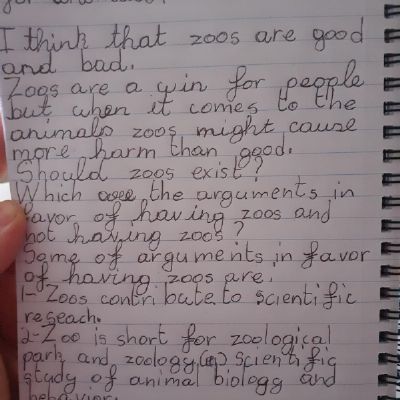 for and
I think that zoos are good
and bad.
Zoos are a win for people
but when it comes to the
animals zoos might cause
more harm than good.
Should zoos exist?
Which are the arguments in
favor of having zoos and
not having zoos?
Some of arguments in favor
of having zoos are.
1- Zoos contribute to scientific
reseach.
2- Zoo is short for zoological
park and zoology scientific
study of animal biology and
behavior.